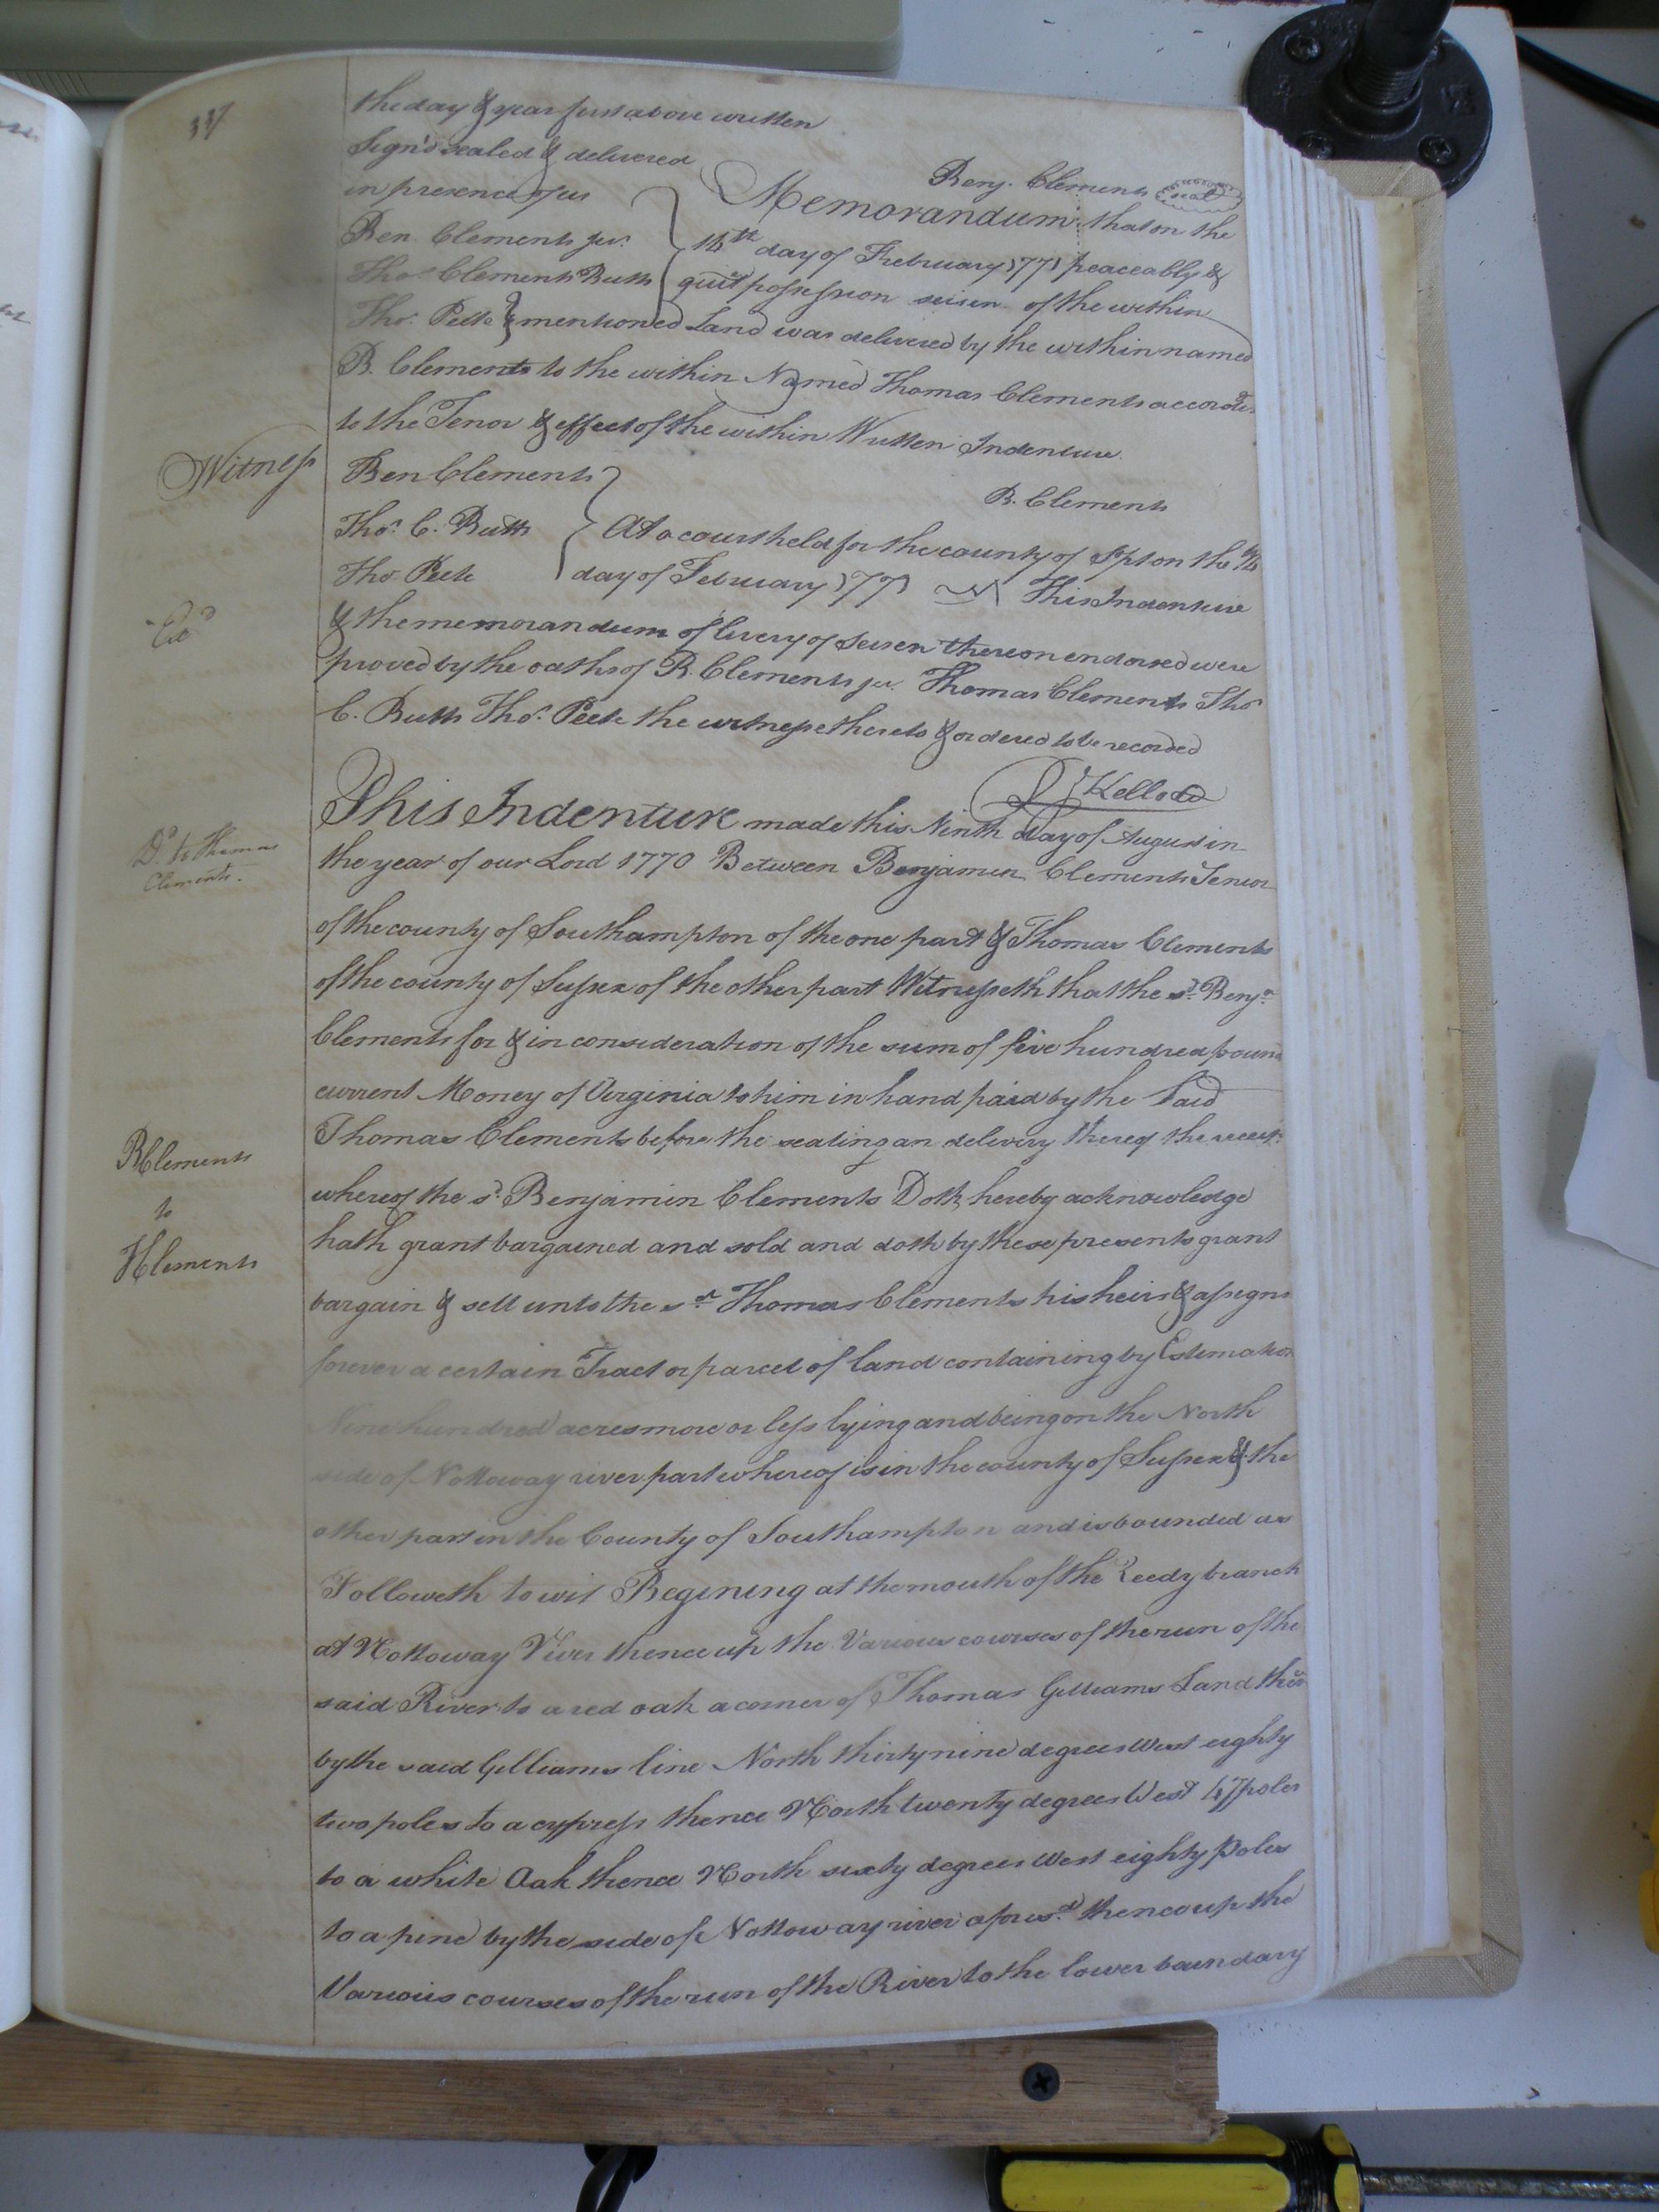 the day & year first above written
Sign'd sealed & delivered
in presence of us
Benj. Clements seal
Memorandum that on the
Ben Clements jur.
14th day of February 1771 peaceably &
Thos Clements Butts
quiet possession seisen of the within
Thos. Peete & mentioned Land was delivered by the within named
B. Clements to the within Named Thomas Clements accordg
to the Tenor & effect of the within Written Indenture.
Witness
Ben Clements
B. Clements
Thos. C. Butts
At a court held for the county of Spton the 14
Tho Peete
day of February 1771 This Indenture
Exd
& the memorandum of livery of Seisen thereon endorsed were
proved by the oaths of B. Clements jur. Thomas Clements Thos
C. Butts Thos. Peete the witnesse thereto & ordered to be recorded
Kello
This Indenture made this Ninth day of August in
Dd. to Thomas
Clements.
the year of our Lord 1770 Between Benjamin Clements Senior
of the county of Southampton of the one part & Thomas Clements
of the county of Sussex of the other part Witnesseth that the sd. Benja
Clements for & in consideration of the sum of five hundred pound
current Money of Virginia to him in hand paid by the Said
Thomas Clements before the sealing an delivery thereof the receit
BClements
to
TClements
whereof the sd. Benjamin Clements Doth hereby acknowledge
hath grant bargained and sold and doth by these presents grant
bargain & sell unto the sd Thomas Clements his heirs & assigns
forever a certain Tract or parcel of land containing by Estimation
Nine hundred acres more or less lying and being on the North
side of Nottoway river part whereof is in the county of Sussex & the
other part in the County of Southampton and is bounded as
Followeth to wit Begining at the mouth of the Reedy branch
at Nottoway River thence up the Various courses of the run of the
said River to a red oak a corner of Thomas Gilliams Land thence
by the said Gilliams line North thirty nine degrees West eighty
two poles to a cypress thence North twenty degrees West 47 poles
to a white Oak thence North sixty degrees West eighty Poles
to a pine by the side of Nottoway river aforesd thence up the
Various courses of the run of the River to the lower boundary